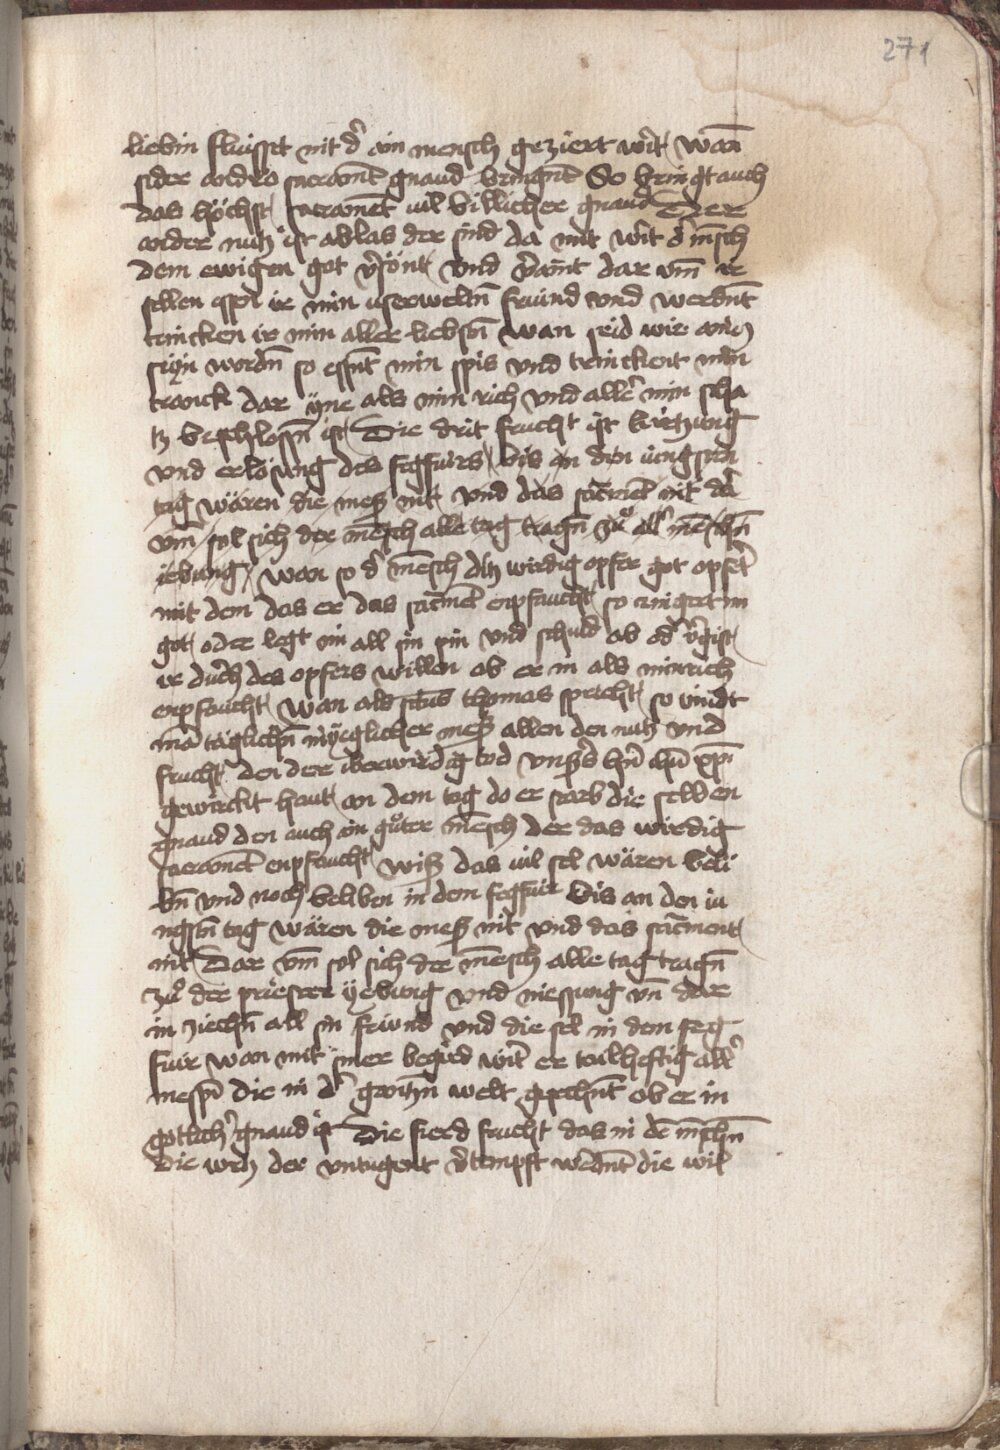 271
liebin fluisset mit d̛ ain mensch geziert wirt wan̄
sider andro sacramēt gnaud bringn̄t So bringt auch
das höchst sacramēt uil billicher gnaud Der
ander nutz ist ablas der sind da mit wirt d̛ mēsch
dem ewigen got v̛sönt Und v̛aint dar um̄ ir
sellen essn ir min userweltn̄ fruind und werdn̄t
trincken ir min aller liebstn̄ wan sid wir ains
sigin wordn̄ so essn̄t min spis und trinckent min
tranck dar yne als min rich und all̛ min scha
tz beschlossn̄ ist Die drit frucht ist kurtzung
und erlösung des fegfuirs bis an den iungsten
tag wären die mess nit Und das sacrmēt nit dar
um̄ sol sich der mēsch alle tag tragn̄ zuͦ all̛ mēschn̄
iebung wan so d̛ mēsch ditz wirdig opfer got opfert
mit dem das er das sacrmēt enpfaucht so ringret im
got oder legt im all sin pin und schuld ab od̛ v̛gist
ir durch des opfers willen ob er in als minrich
enpfaucht wan als sctus thomas spricht so uindt
mā täglichn̄ in yeglicher mess allen den nutz und
frucht den der iberwirdig tod unss̛s hn̄ ihū xp̄i
gewirckt haut an dem tag do er starb die selben
gnaud den auch ain guͦter mēsch der das wirdig
sacramēt enpfaucht wiss das uil sel wären beli
bn̄ und noch beliben in dem fegfuir bis an den iu
ngstn̄ tag wären die mess nit und das sacrment
nit Dar um̄ sol sich der mēsch alle tag tragn̄
zuͦ der priester yebung und niessung un̄ dar
in ziechn̄ all sin fruind und die sel in dem feg
fuir wan mit siner begird wirt er tailheftig all̛
messn̄ die in d̛ gantzn̄ welt geschēt ob er in
gotlich̛ gnaud ist Die fierd frucht das in dē mēschn̄
die wrtz der untugent v̛tempft werdn̄t die wil